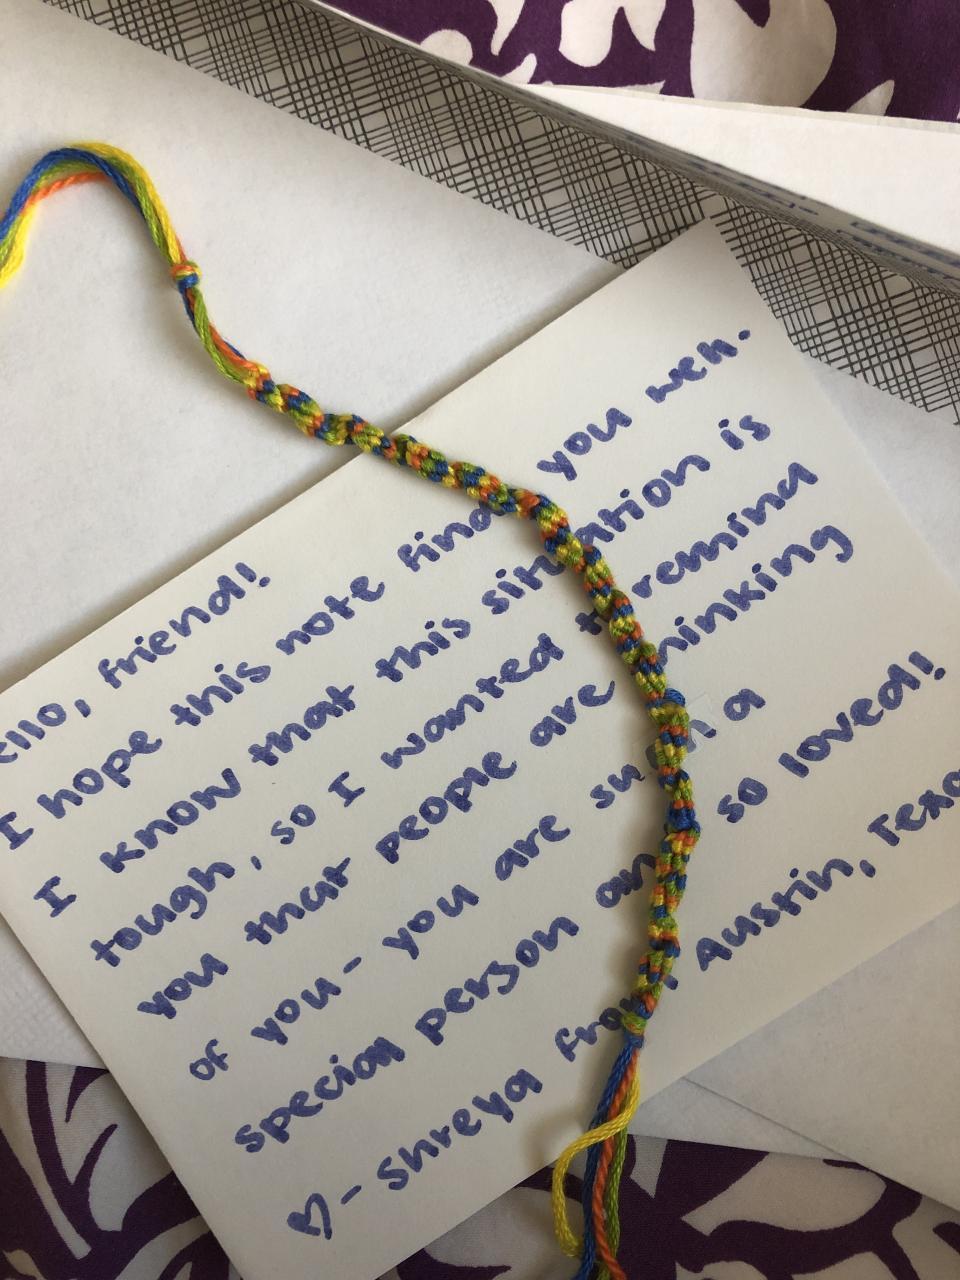 ello, friend!
I hope this note finds you well.
I know that this situation is
tough, so I wanted to remind
you that people are thinking
of you - you are such a
special person and so loved!
♡ - Shreya from Austin, Texa